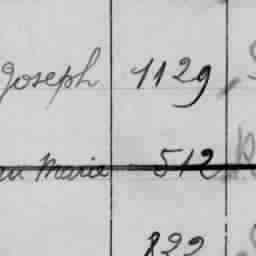 Joseph 1129
Marie 512
822